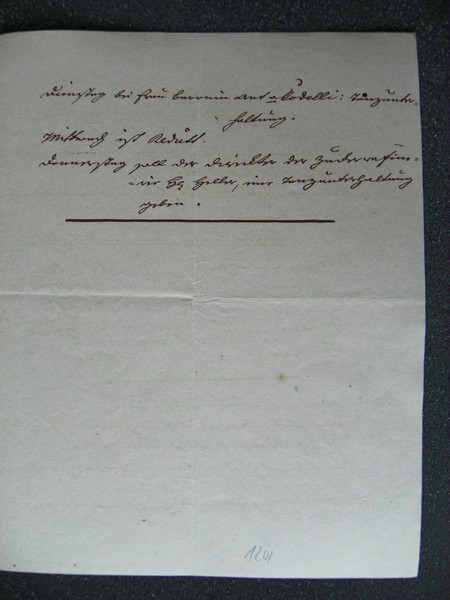 Dienstag bei Frau Baronin Ant. Codelli: Tanzunter-
haltung.
Mittwoch ist Redutt.
Donnerstag soll der Direckter der Zuckerrafine-
rie Hr Heller, eine Tanzunterhaltung
geben.
1201